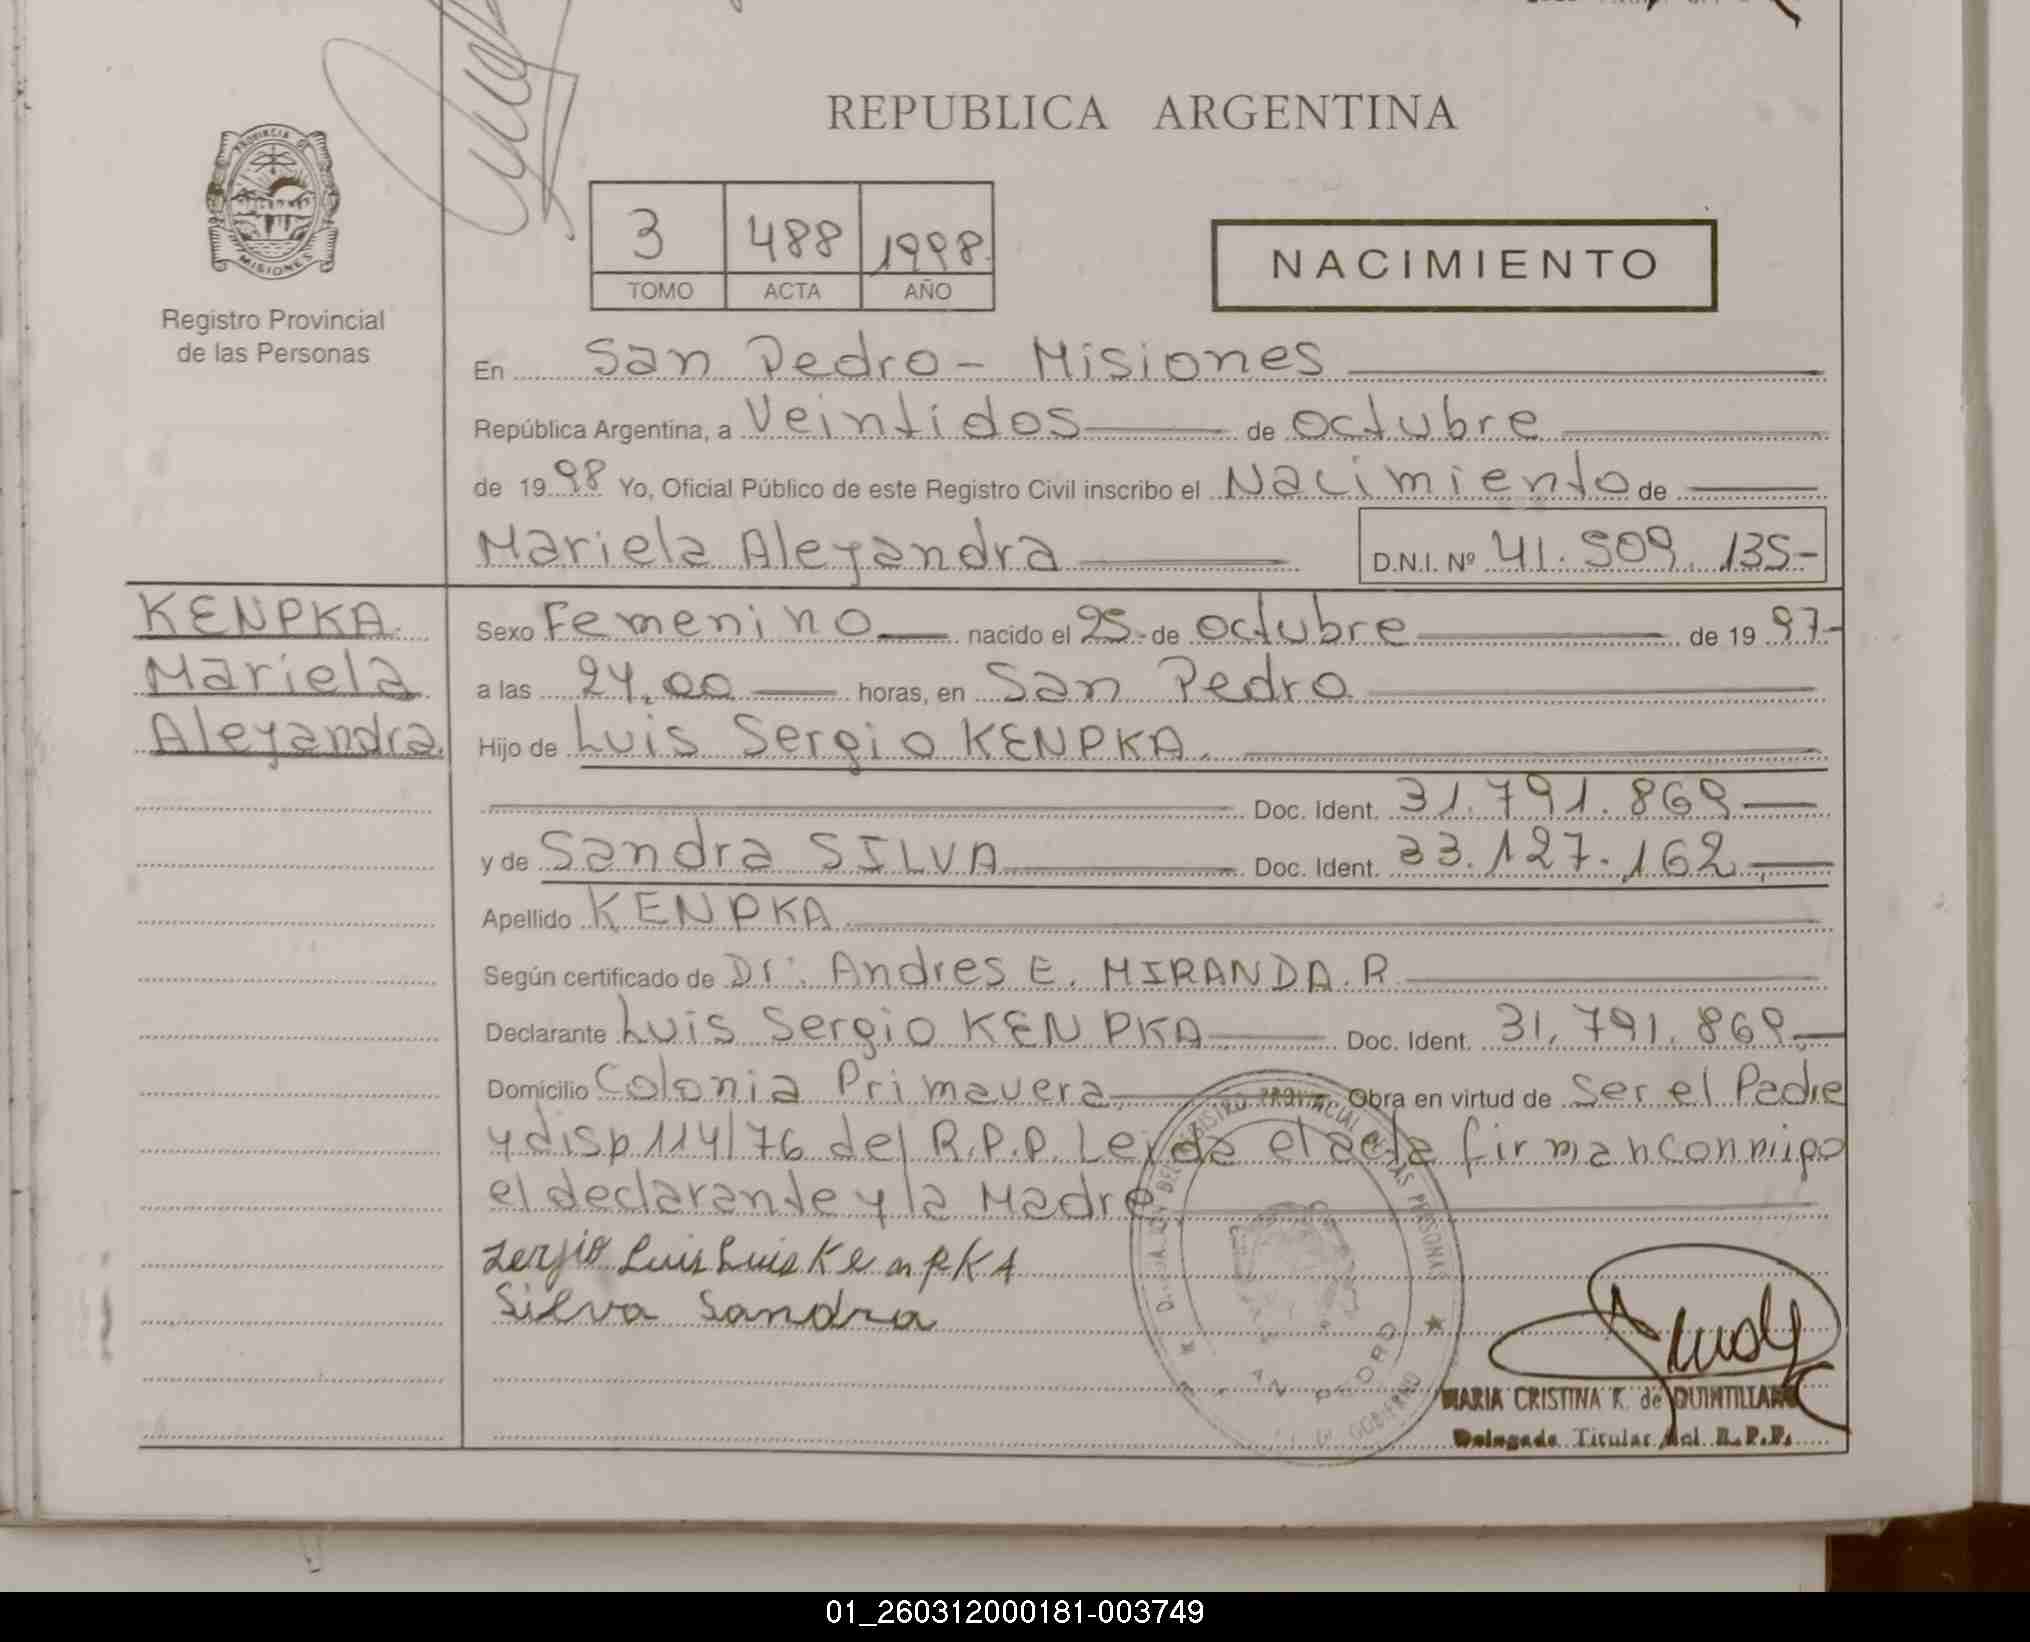 REPUBLICA ARGENTINA
PROVINCIA DE
MISIONES
Registro Provincial
de las Personas
3 488 1998.
TOMO ACTA AÑO
NACIMIENTO
En San Pedro - Misiones
República Argentina, a Veintidos de octubre
de 1998 Yo, Oficial Público de este Registro Civil inscribo el Nacimiento de
Mariela Aleyandra D.N.I. Nº 41.509.135-
KENPKA.
Mariela
Aleyandra.
Sexo Femenino nacido el 25 de octubre de 1997-
a las 24,00 horas, en San Pedro
Hijo de Luis Sergio KENPKA.
Doc. Ident. 31.791.869
y de Sandra SILVA Doc. Ident. 33.127.162
Apellido KENPKA
Según certificado de Dr: Andres E. MIRANDA. R
Declarante Luis Sergio KENPKA Doc. Ident. 31.791.869
Domicilio Colonia Primavera Obra en virtud de Ser el Padre
y disp 114/76 del R.P.P. Leida el acta firman conmigo
el declarante y la Madre
Sergio Luis Luis KenpKA
Silva Sandra
REGISTRO PROVINCIAL DE LAS PERSONAS
SAN PEDRO
GOBIERNO
MARIA CRISTINA K. de QUINTILLAN
Delegada Titular del R.P.P.
01_260312000181-003749